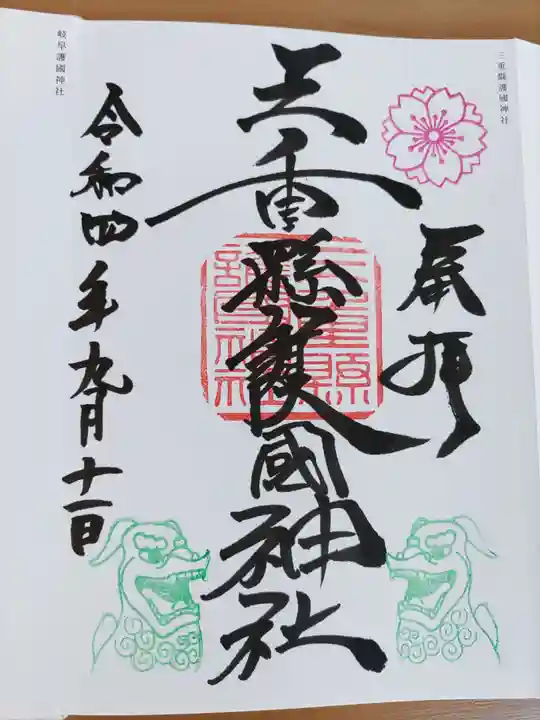 三重縣護國神社
奉拝
三重縣護國神社
三重縣護國神社
令和四年九月十一日
岐阜護國神社